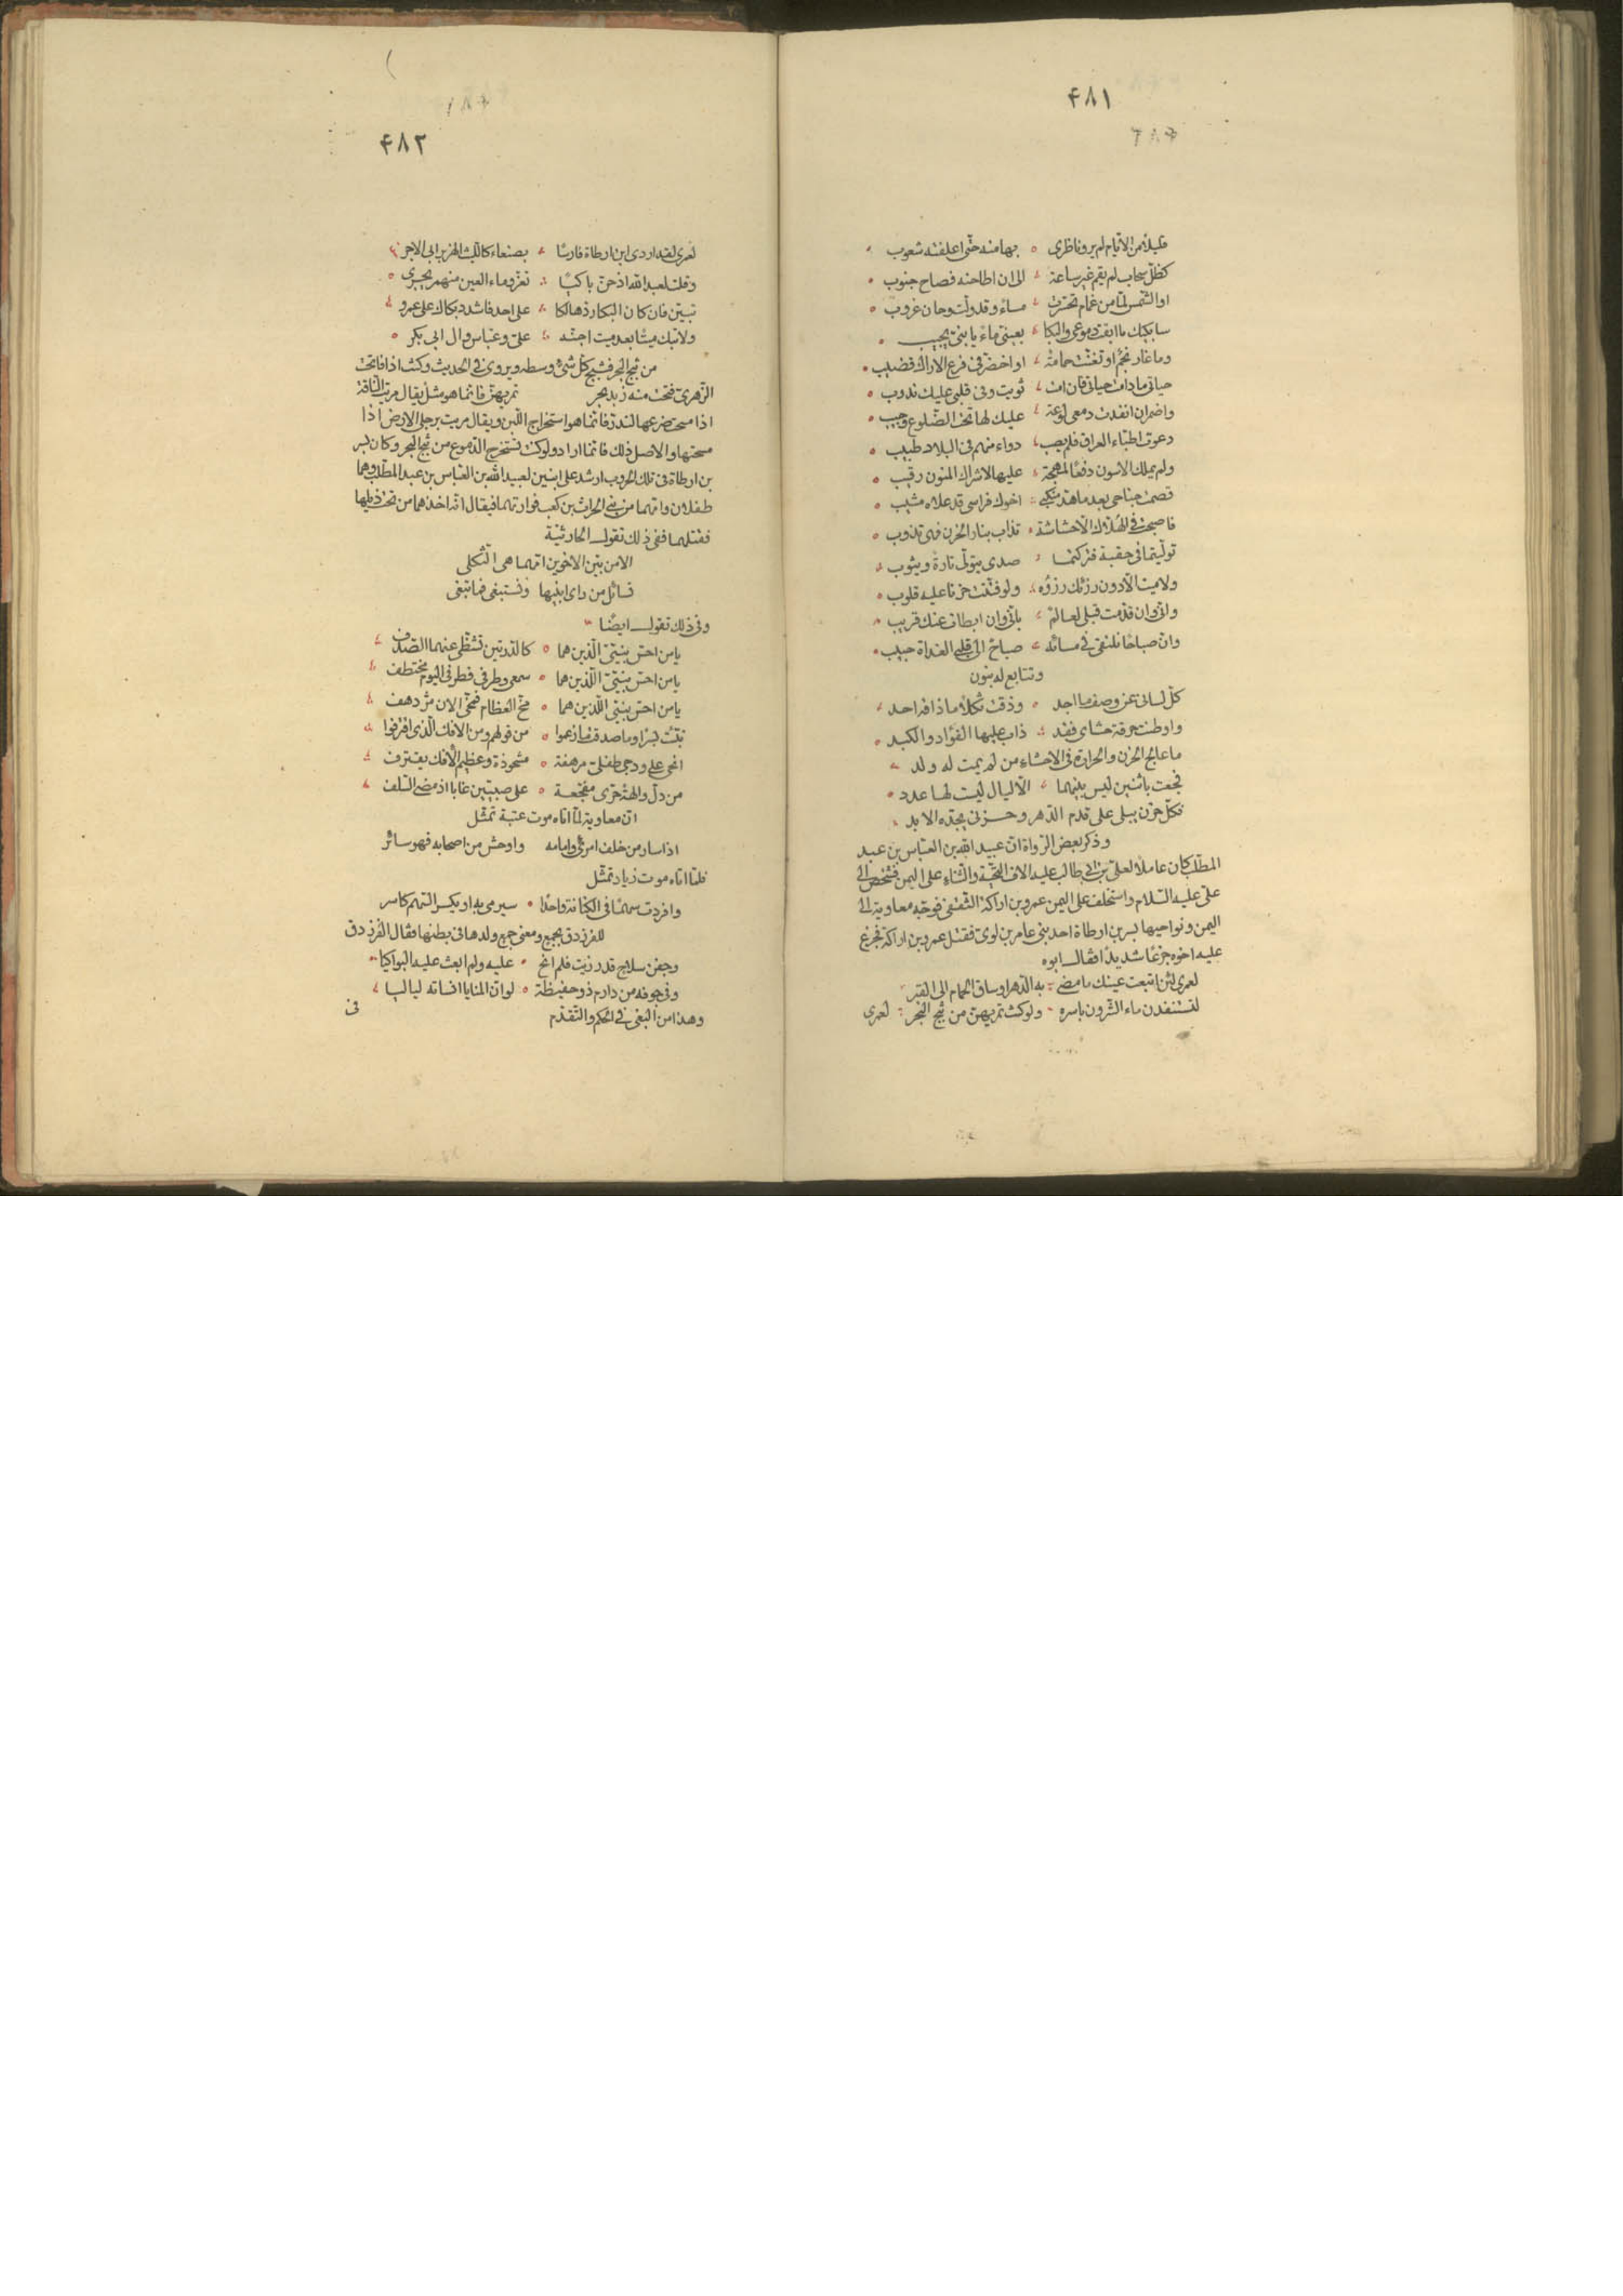 ۴۸۱
قليلا من الايام لم يرو ناظرى ٥ بها منه حتى اعلقته شعوب
كظل سحاب لم يقم غير ساعة الى ان اطاحته فصاح جنوب
او الشمس لما من غمام تحسرت مساء وقد ولت وحان غروب
سابكيك ما ابقت دموعى والبكا بعينى ماء يا بنى يجيب
وما غار نجم او تغنت حمامة او اخضر فى فرع الاراك قضيب
حياتى ما دامت حياتى فان امت ثويت وفى قلبى عليك ندوب
واضمر ان انفدت دمعى لوعة عليك لها تحت الضلوع وجيب
دعوت اطباء العراق فلم يصب دواء منهم فى البلاد طبيب
ولم يملك الاسون دفعا لمهجة عليها لاشراك المنون رقيب
قصمت جناحى بعد ما هد منكبى اخوك فراسى قد علاه مشيب
فاصبحت فى الهلاك الا حشاشة تذاب بنار الحزن فهى تذوب
توليتما فى حقبة فتركتما صدى يتولى تارة ويثوب
ولا ميت الا دون رزئك رزؤه ولو فتتت حزنا عليه قلوب
وانى وان قدمت قبلى لعالم بانى وان ابطات عنك قريب
وان صباحا نلتقى فى مسائه صباح الى قلبى الغداة حبيب
وتتابع له بنون
كل لسانى عن وصف ما اجد وذقت ثكلا ما ذاقه احد
واوطنت حرقة حشاى فقد ذاب عليها الفؤاد والكبد
ما عالج الحزن والحرارة فى الاحشاء من لم يمت له ولد
فجعت باثنين ليس بينهما الا ليال ليست لها عدد
فكل حزن يبلى على قدم الدهر وحزنى يجده الابد
وذكر بعض الرواة ان عبيد الله بن العباس بن عبد
المطلب كان عاملا لعلى بن ابى طالب عليه الاف التحية والثناء على اليمن فشخص الى
على عليه السلام واستخلف على اليمن عمرو بن اراكة الثقفى فوجه معاوية الى
اليمن ونواحيها بسر بن ارطاة احد بنى عامر بن لوى فقتل عمرو بن اراكة فجزع
عليه اخوه جزعا شديدا فقال ابوه
لعمرى لئن اتبعت عينك ما مضى به الدهر او ساق الحمام الى القبر
لتستنفدن ماء الشؤون باسره ولو كنت تمريهن من ثبج البحر لعمرى
۴۸۲
لعمرى لقد اردى ابن ارطاة فارسا بصنعاء كالليث الهزبر ابى الاجر
وقلت لعبد الله اذ حن باكيا تعز وماء العين منهمر يجرى
تبين فان كان البكا رد هالكا على احد فاشدد بكاك على عمرو
ولا تبك ميتا بعد ميت اجنه على وعباس وال ابى بكر
من ثبج البحر فثبج كل شئ وسطه ويروى فى الحديث وكنت اذا فاتحت
الزهرى فتحت منه ثبج بحر تمريهن فانما هو مثل يقال مريت الناقة
اذا مسحت ضرعها لتدر فانما هو استخراج اللبن ويقال مريت برجلى الارض اذا
مسحتها والاصل ذلك فانما اراد ولو كنت تستخرج الدموع من ثبج البحر وكان بسر
بن ارطاة فى تلك الحروب ارشد على ابنين لعبيد الله بن العباس بن عبد المطلب وهما
طفلان وامهما من بنى الحراث بن كعب فوارتهما فيقال انه اخذهما من تحت ذيلها
فقتلهما ففى ذلك تقول الحارثية
الا من بين الاخوين امهما هى الثكلى
تسائل من راى ابنيها وتستبغى فما تبغى
وفى ذلك تقول ايضا
يا من احس بنيى الذين هما ٥ كالدرتين تشظى عنهما الصدف
يا من احس بنيى اللذين هما ٥ سمعى وطرفى فطرفى اليوم مختطف
يا من احس بنيى اللذين هما ٥ مخ العظام فمخى الان مزدهف
نبئت بسرا وما صدقت ما زعموا ٥ من قولهم ومن الافك الذى اقترفوا
انحى على ودجى طفلى مرهفة ٥ مشحوذة وعظيم الافك يقترف
من دل والهة حرى مفجعة ٥ على صبيين غابا اذ مضى السلف
ان معاوية لما اتاه موت عتبة تمثل
اذا سار من خلف امرئ وامامه واوحش من اصحابه فهو سائر
فلما اتاه موت زياد تمثل
وافردت سهما فى الكنانة واحدا سيرمى به او يكسر السهم كاسر
للفرزدق بجمع ومعنى جمع ولدها فى بطنها فقال الفرزدق
وجفن سلاح قد رزيت فلم انح عليه ولم ابعث عليه البواكيا
وفى جوفه من دارم ذو حفيظة ٥ لو ان المنايا انسأته لياليا
وهذا من البغى فى الحكم والتقدم
فى